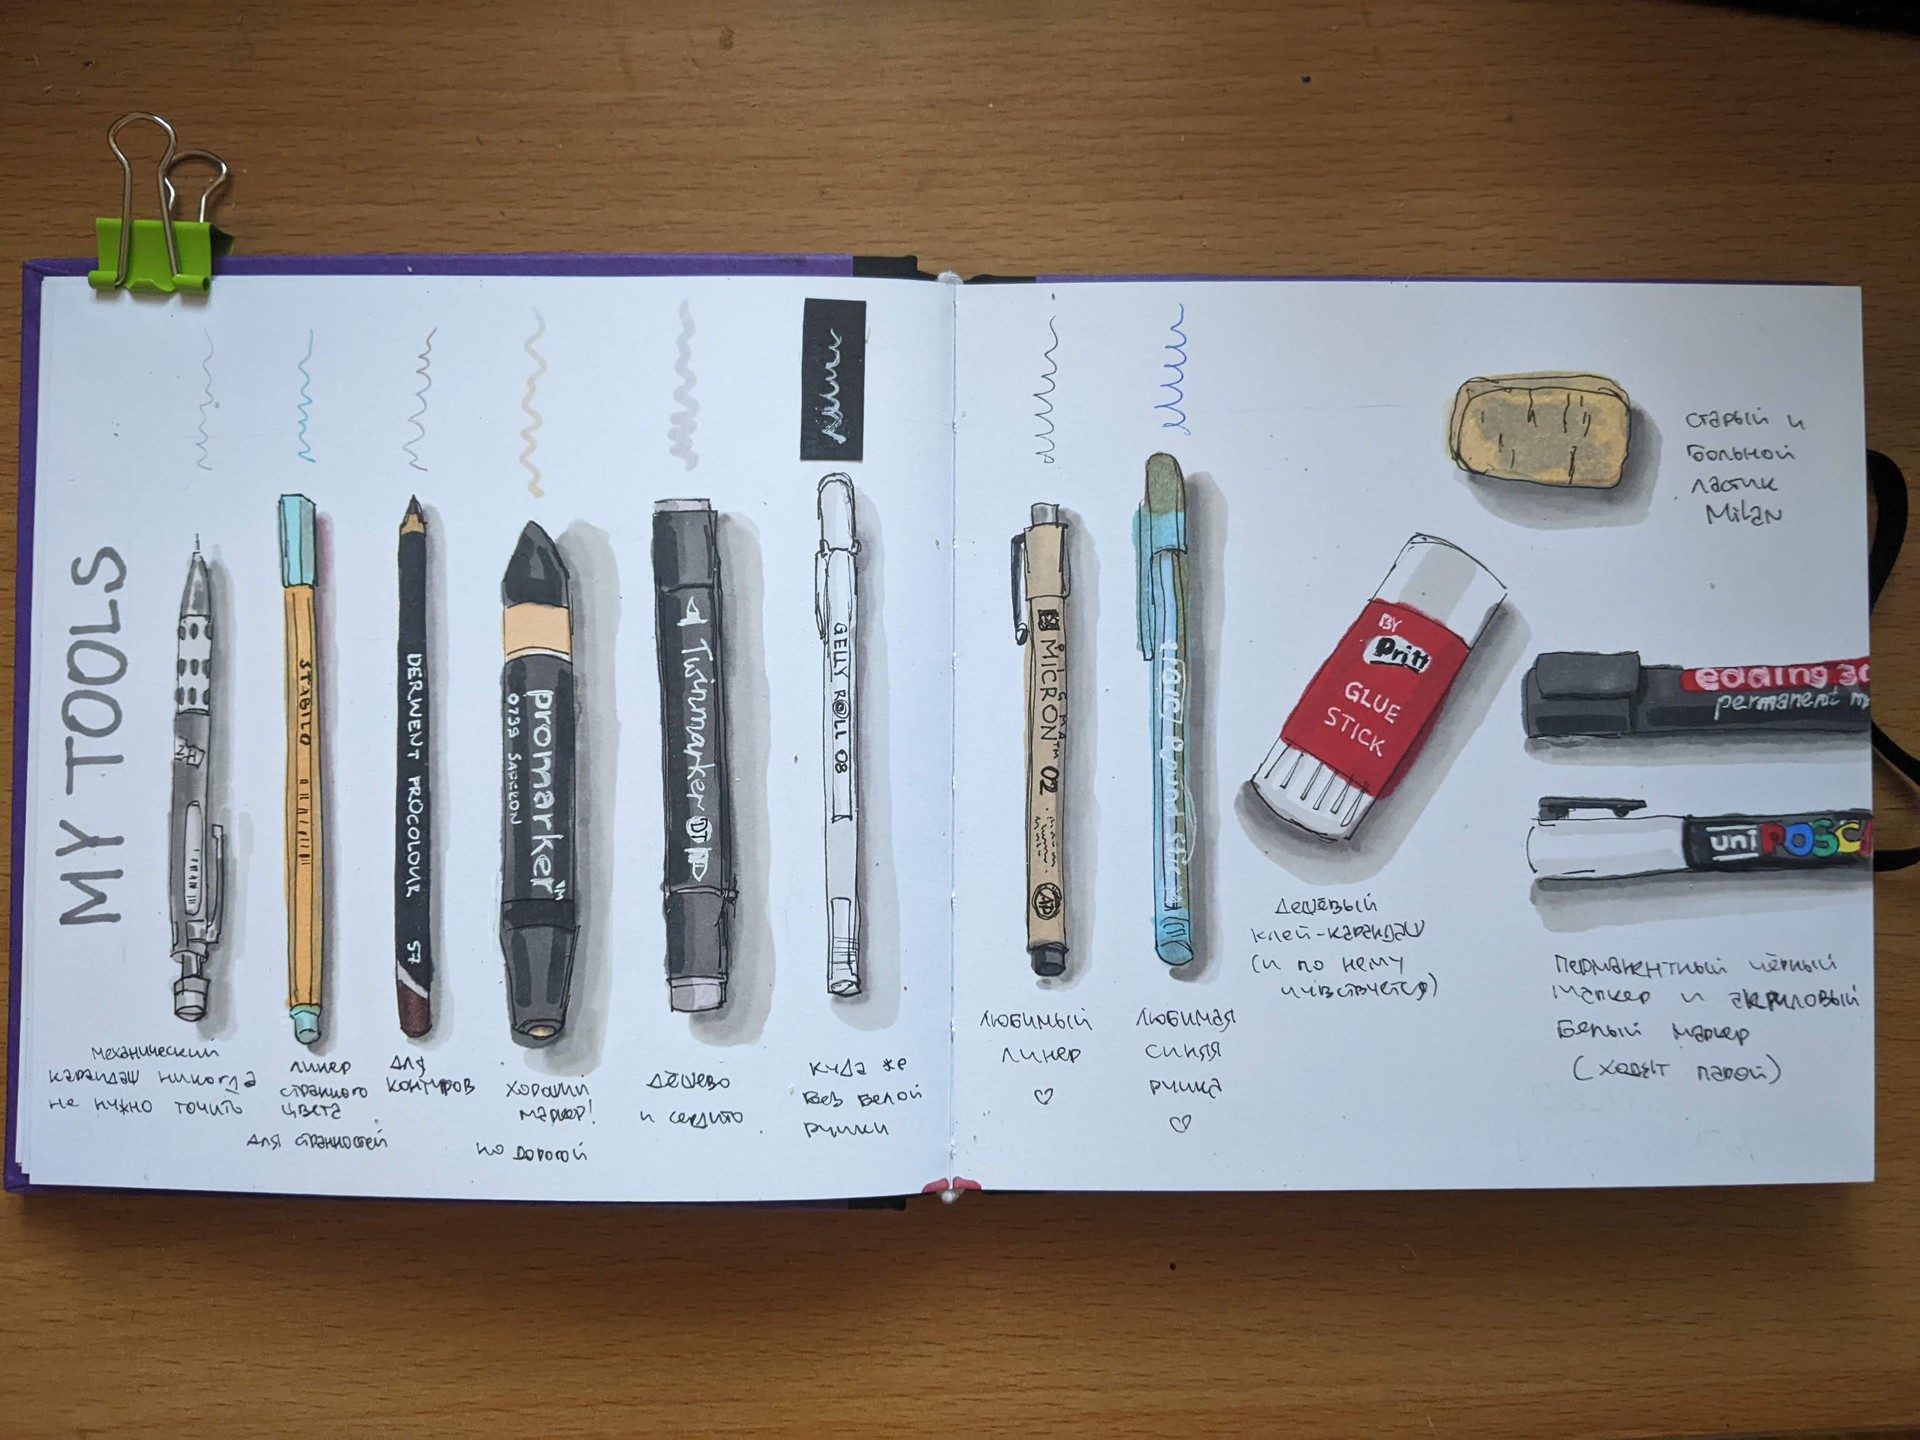 MY TOOLS
STABILO
DERWENT PROCOLOUR 57
promarker™
0739 SAFFRON
Twinmarker
GELLY ROLL 08
механический
карандаш никогда
не нужно точить
линер
странного
цвета
для странностей
для
контуров
хороший
маркер!
но дорогой
дёшево
и сердито
куда же
без белой
ручки
PIGMA™
MICRON 02
AP
любимый
линер
♡
любимая
синяя
ручка
♡
BY
Pritt
GLUE
STICK
дешёвый
клей-карандаш
(и по нему
чувствуется)
старый и
больной
ластик
Milan
edding 30
permanent m
uni POSC
перманентный чёрный
маркер и акриловый
белый маркер
(ходят парой)